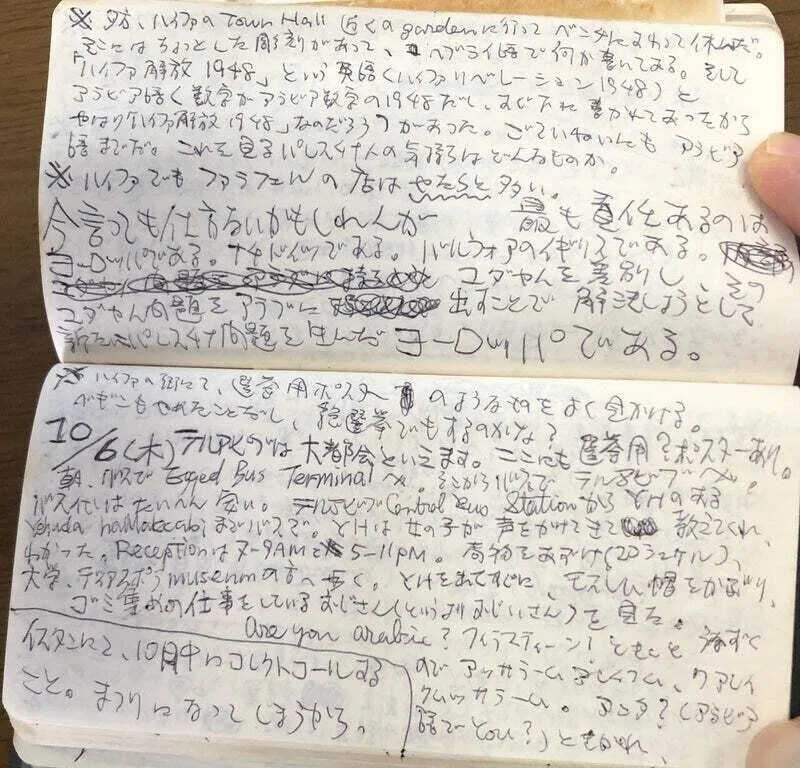 ※ 夕方、ハイファの town Hall 近くの garden に行って ベンチにすわって休んだ。
そこにはちょっとした彫刻があって、ヘブライ語で何か書いてある。そして
「ハイファ解放 1948」という英語(ハイファリベレーション 1948)と
アラビア語(数字がアラビア数字の1948だし、まじたれ書かれてあったから
やはり「ハイファ解放 1948」なのだろう)があった。ごていねいにも アラビア
語までだ。これを見るパレスチナ人の気持ちはどんなものか。
※ ハイファでも ファラフェルの 店は やたらと 多い。
今言っても仕方ないかもしれんが 最も責任あるのは
ヨーロッパである。ナチドイツである。バルフォアのイギリスである。
ユダヤ人を差別し、その
ユダヤ人問題をアラブに 出すことで 解決しようとして
新たなパレスチナ問題を生んだ ヨーロッパである。
※ ハイファの街にて、選挙用ポスター のようなものをよく見かける。
ペギンもやめたことだし、総選挙でもするのかな?
10/6(木) テルアビブは大都会といえます。ここにも 選挙用?ポスターあり。
朝、バスで Egged Bus Terminal へ。そこからバスで テルアビブへ。
バス代はたいへん安い。テルアビブ Central Bus Station から YHのある
Yehuda haMakkabi までバスで。YHは女の子が声をかけてきて 教えてくれ、
わかった。Reception は 7-9AM と 5-11PM。荷物をあずけ(20シェケル)、
大学、ディアスポラ museum の方へ歩く。YHを出てすぐに、モスリム帽をかぶり、
ゴミ集めの仕事をしているおじさん(というよりおじいさん)を見る。
Are you arabic? フィラスティーン! ともに うなずく
ので アッサラーム アレイクム、ワアレイ
クムッサラーム。アンタ?(アラビア
語で You?)ときかれ、
イスタンにて、10月中にコレクトコールする
こと。まつりになってしまうから。